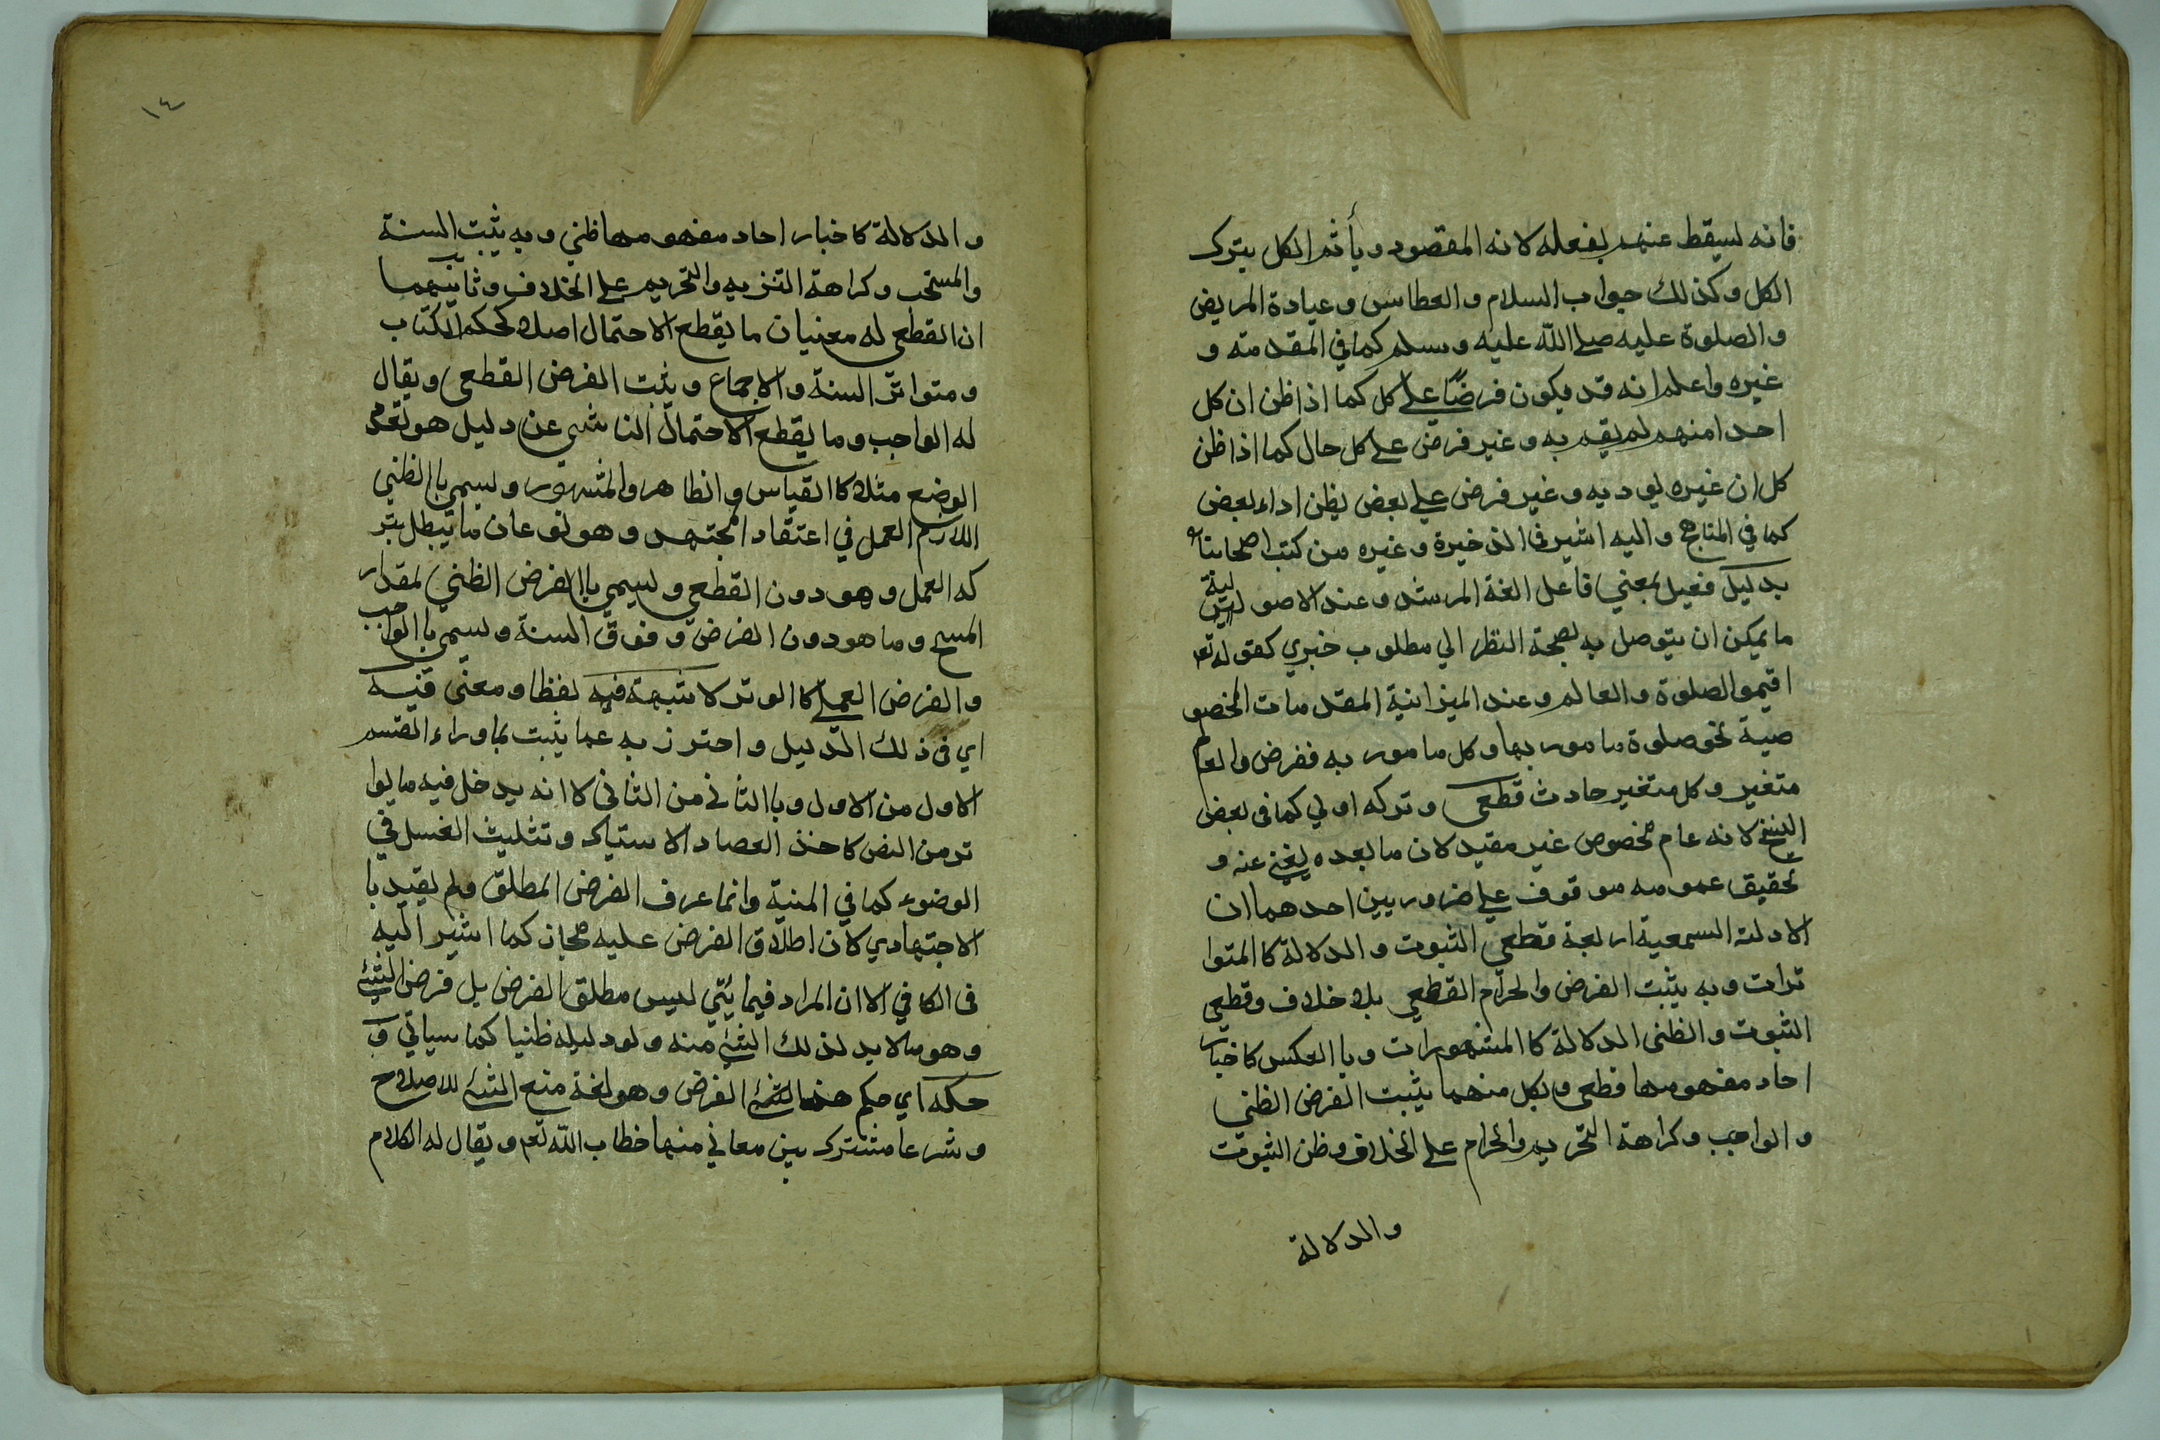 فانه ليسقط عنهم بفعله لانه المقصود ويأثم الكل بترك
الكل وكذلك جواب السلام والعطاس وعيادة المريض
والصلوة عليه صلى الله عليه وسلم كما في المقدمة و
غيره واعلم انه قد يكون فرضًا على كل كما اذا ظن ان كل
احدا منهم لم يقم به وغير فرض على كل حال كما اذا ظن
كل ان غيره يوديه وغير فرض على بعض يظن اداء بعض
كما في المناهج واليه اشير في الذخيرة وغيره من كتب اصحابنا
بدليل فعيل بمعني فاعل الغة المرشد وعند الاصوليين
ما يمكن ان يتوصل به بصحة النظر الي مطلوب خبري كقوله تع
اقيموا الصلوة والعالم وعند الميزانية المقدمات المخصو
صية نحو صلوة مامور بها وكل مامور به ففرض والعالم
متغير وكل متغير حادث قطعي وتركه اولي كما في بعض
النسخ لانه عام مخصوص غير مقيد لان ما بعده يغني عنه و
تحقيق عمومه موقوف على ضروريين احدهما ان
الادلة السمعية اربعة قطعي الثبوت والدلالة كا المتوا
ترات وبه يثبت الفرض والحرام القطعي بلا خلاف وقطعي
الثبوت والظني الدلالة كا المشهورات وبا العكس كاخبار
احاد مفهومها قطعي وبكل منهما يثبت الفرض الظني
والواجب وكراهة التحريم والحرام على الخلاف وظن الثبوت
والدلالة
١٤
والدلالة كاخبار احاد مفهومها ظني وبه يثبت السنة
والمستحب وكراهة التنزيه والتحريم على الخلاف وثانيهما
ان القطعي له معنيان ما يقطع الاحتمال اصلا كحكم الكتاب
ومتواتر السنة والاجماع ويثبت الفرض القطعي ويقال
له الواجب وما يقطع الاحتمال الناشي عن دليل هو تعدد
الوضع مثلا كا القياس والظاهر والمشهور ويسمي با الظني
اللازم العمل في اعتقاد المجتهد وهو نوعان ما يبطل بتر
كه العمل وهو دون القطعي ويسمي با الفرض الظني لمقدار
المسح وما هو دون الفرض وفوق السنة ويسمي با الواجب
والفرض العملي كا الوتر لا شبهة فيه لفظا ومعنى فيه
اي في ذلك الدليل واحترز به عما يثبت بما وراء القسم
الاول من الاول وبا الثاني من الثاني لا انه يدخل فيه ما يوا
تر من النص كاخذ العصا والاستياك وتثليث الغسل في
الوضوء كما في المنية وانما عرف الفرض المطلق ولم يقيد با
الاجتهادي لان اطلاق الفرض عليه مجاز كما اشير اليه
في الكافي الا ان المراد فيما يتي ليس مطلق الفرض بل فرض الشئ
وهو ما لا بد لذلك الشئ منه ولو دليله ظنيا كما سيأتي و
حكمه اي حكم هذا الشئ الفرض وهو لغة منع الشئ للاصلاح
وشرعا مشترك بين معاني منها خطاب الله تع ويقال له الكلام